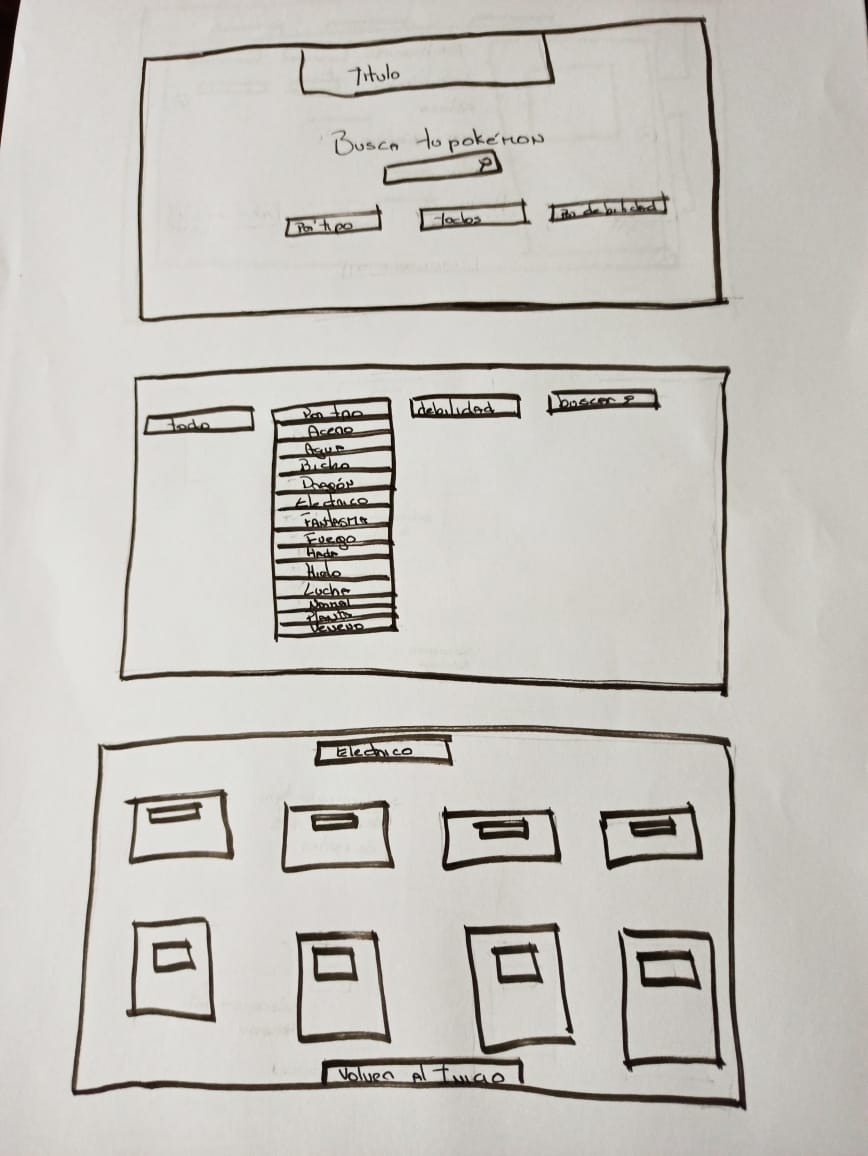 Titulo
Busca tu pokémon
Por tipo
todos
Por debilidad
todo
Por tipo
debilidad
buscar
Acero
Agua
Bicho
Dragón
Electrico
FANTASMA
Fuego
Hada
Hielo
Lucha
Normal
Planta
Veneno
Electrico
Volver Al Inicio